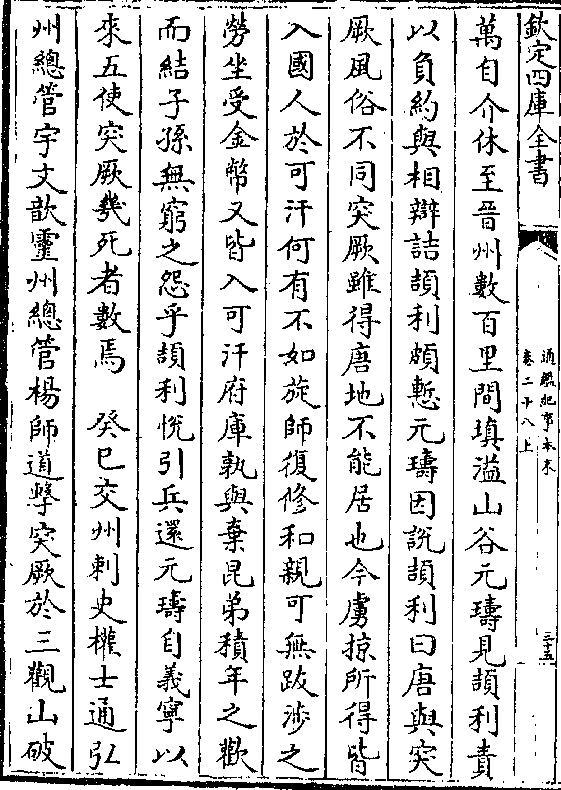 欽定四庫全書
通鑑紀事本末
卷二十八上
三十五
萬自介休至晉州數百里間填溢山谷元璹見頡利責
以負約與相辯詰頡利頗慙元璹因說頡利曰唐與突
厥風俗不同突厥雖得唐地不能居也今虜掠所得皆
入國人於可汗何有不如旋師復修和親可無跋涉之
勞坐受金幣又皆入可汗府庫孰與棄昆弟積年之歡
而結子孫無窮之怨乎頡利悅引兵還元璹自義寧以
來五使突厥幾死者數焉　癸巳交州刺史權士通弘
州總管宇文歆靈州總管楊師道擊突厥於三觀山破